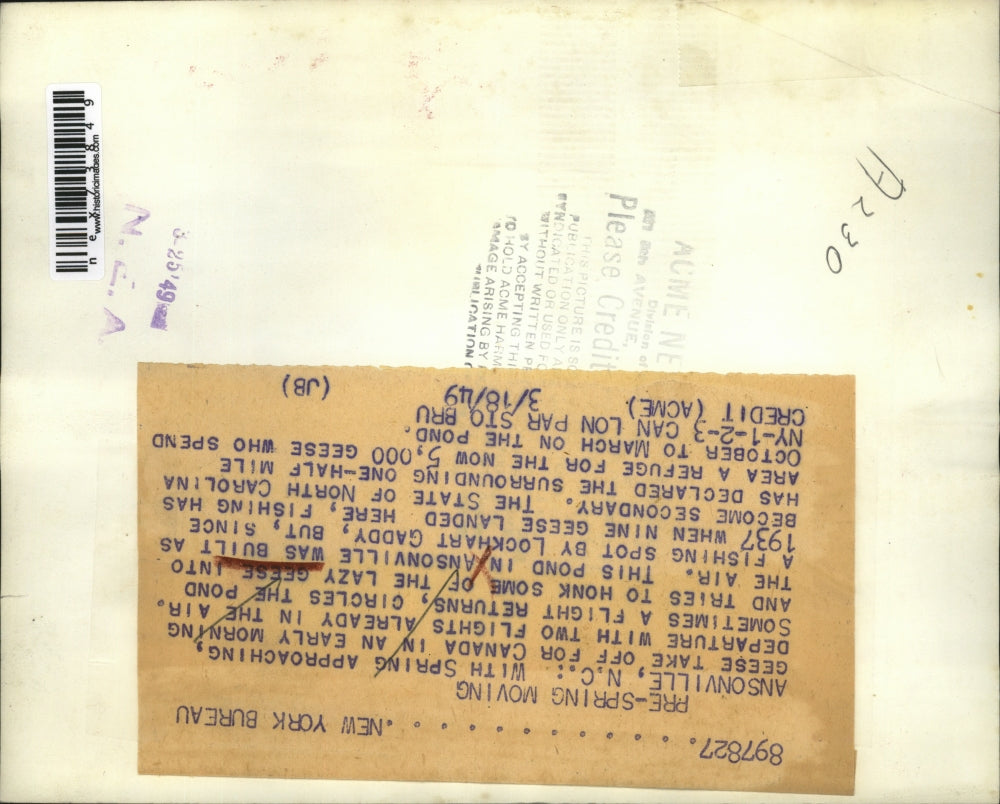 897827. . . . . . . . . . . . .NEW YORK BUREAU
PRE-SPRING MOVING
ANSONVILLE, N.C.: WITH SPRING APPROACHING,
GEESE TAKE OFF FOR CANADA IN AN EARLY MORNING
DEPARTURE WITH TWO FLIGHTS ALREADY IN THE AIR.
SOMETIMES A FLIGHT RETURNS, CIRCLES THE POND
AND TRIES TO HONK SOME OF THE LAZY GEESE INTO
THE AIR. THIS POND IN ANSONVILLE WAS BUILT AS
A FISHING SPOT BY LOCKHART GADDY, BUT, SINCE
1937 WHEN NINE GEESE LANDED HERE, FISHING HAS
BECOME SECONDARY. THE STATE OF NORTH CAROLINA
HAS DECLARED THE SURROUNDING ONE-HALF MILE
AREA A REFUGE FOR THE NOW 5,000 GEESE WHO SPEND
OCTOBER TO MARCH ON THE POND.
NY-1-2-3 CAN LON PAR STO BRU
CREDIT (ACME) 3/18/49 (JB)
ACME NE
Division of
AVENUE,
Please Credit
THIS PICTURE IS
PUBLICATION ONLY
SYNDICATED OR USED
WITHOUT WRITTEN
BY ACCEPTING
TO HOLD ACME
ARISING BY
PUBLICATION
A230
www.historicimages.com
n e x 7 3 8 4 9
N. E. A.